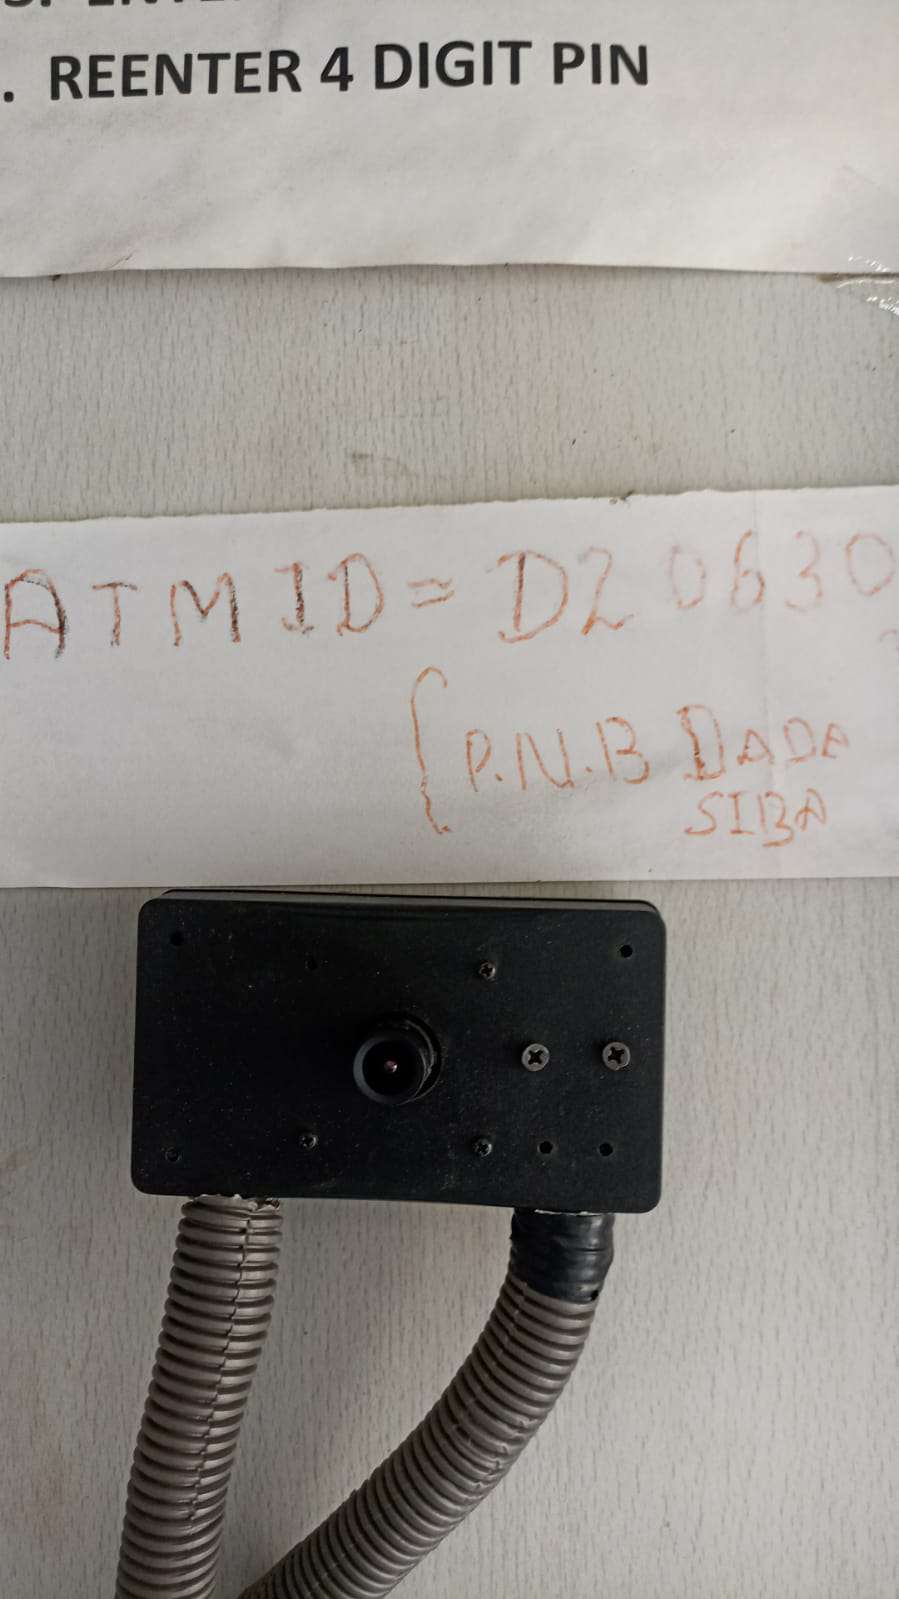 . REENTER 4 DIGIT PIN
ATM ID = D20630
P.N.B DADA
SIBA